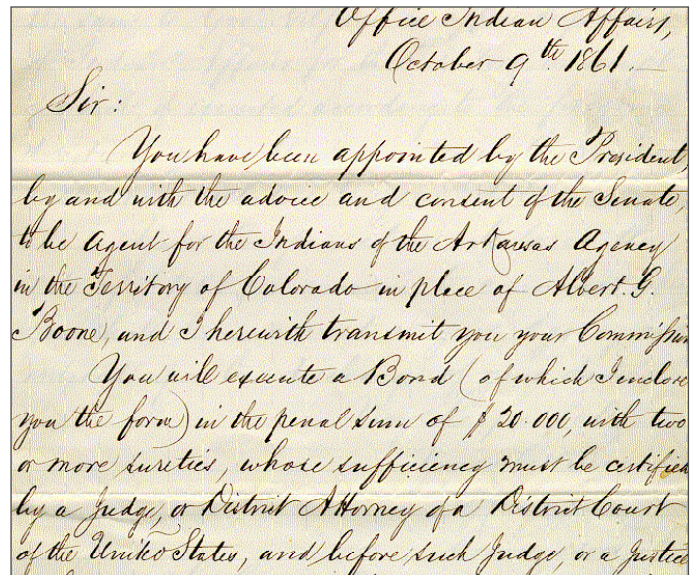 Office Indian Affairs,
October 9th. 1861.
Sir:
You have been appointed by the President,
by and with the advice and consent of the Senate,
to be Agent for the Indians of the Arkansas Agency
in the Territory of Colorado in place of Albert. G.
Boone, and I herewith transmit you your Commission
You will execute a Bond (of which I enclose
you the form) in the penal sum of $20.000, with two
or more sureties, whose sufficiency must be certified
by a Judge, or District Attorney of a District Court
of the United States, and before such Judge, or a Justice